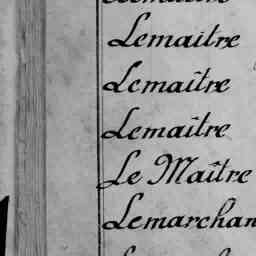 Lemaitre
Lemaître
Lemaître
Le Maître
Lemarchan